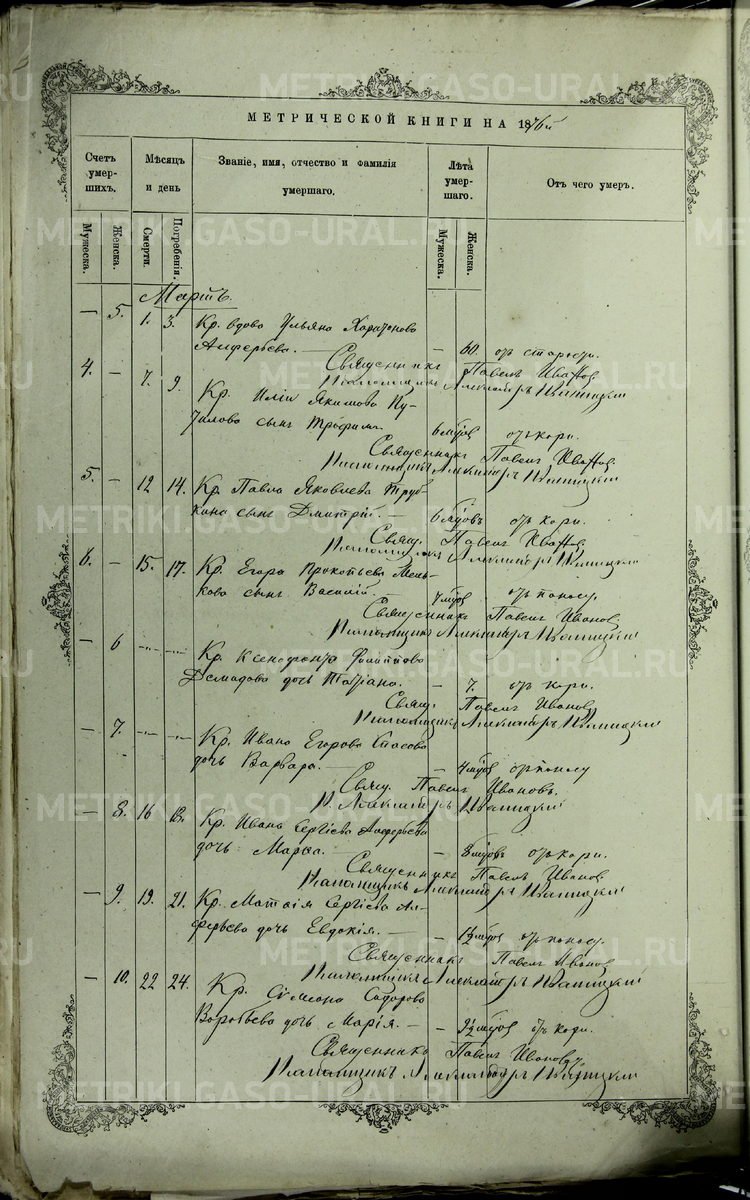 МЕТРИЧЕСКОЙ КНИГИ НА 1876й
Счетъ умер-шихъ.
Мужеска.
Женска.
Мѣсяцъ и день
Смерти.
Погребенія.
Званіе, имя, отчество и фамилія умершаго.
Лѣта умер-шаго.
Мужеска.
Женска.
Отъ чего умеръ.
Мартъ.
— 5. 1. 3. Кр. вдова Ульяна Харитонова
Алферьева. — — 60. отъ старости.
Священникъ Павелъ Ивановъ
Псаломщикъ Александръ
4. — 7. 9. Кр. Иліи Якимова Пу-
тилова сынъ Трофимъ 6 мѣсяц. отъ кори.
Священникъ Павелъ Ивановъ.
Псаломщикъ Александръ
5. — 12 14. Кр. Павла Яковлева Труб-
кина сынъ Дмитрій. — 6 мѣсяцовъ отъ кори.
Свящ. Павелъ Ивановъ
Псаломщикъ Александръ
6. — 15. 17. Кр. Егора Прокопьева Мень-
кова сынъ Василій. 4 мѣсяц. отъ поносу.
Священникъ Павелъ Ивановъ
Псаломщикъ Александръ
— 6 —„— —„— Кр. Ксенофонта Филиппова
Демидова дочь Татіана. — 7. отъ кори.
Свящ. Павелъ Ивановъ
Псаломщикъ Александръ
— 7. —„— —„— Кр. Ивана Егорова Спасова
дочь Варвара. — — 4 мѣсяц. отъ поносу
Свящ. Павелъ Ивановъ.
П. Александръ
— 8. 16 18. Кр. Ивана Сергіева Алферьева
дочь Марѳа. — — 8 мѣсяцовъ отъ кори.
Священникъ Павелъ Ивановъ
Псаломщикъ Александръ
— 9. 19. 21. Кр. Матѳія Сергіева Ал-
ферьева дочь Евдокія. — — 1½ мѣсяц. отъ поносу.
Священникъ Павелъ Ивановъ
Псаломщикъ Александръ
— 10. 22 24. Кр. Сѵмеона Сидорова
Воробьева дочь Марія. — — 9½ мѣсяц. отъ кори.
Священникъ Павелъ Ивановъ
Псаломщикъ Александръ
METRIKI.GASO-URAL.RU